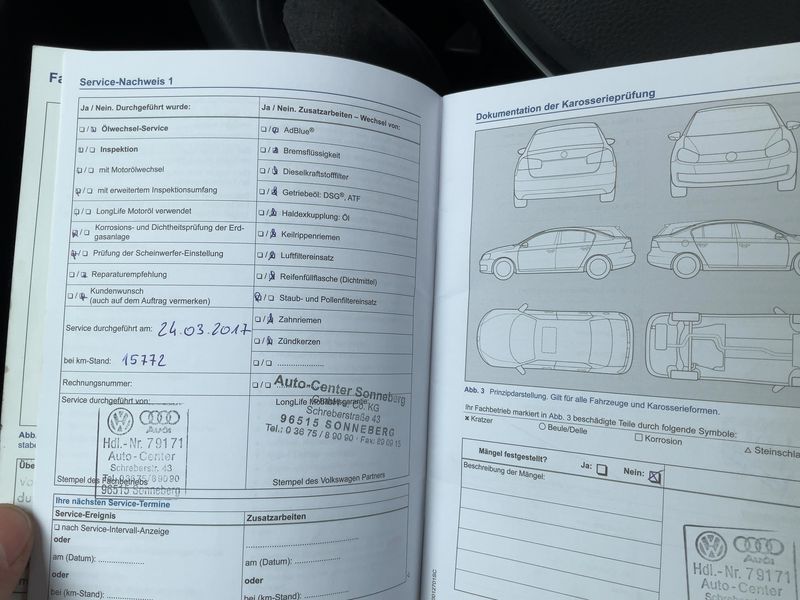 Fa
Service-Nachweis 1
Ja / Nein. Durchgeführt wurde:
☐ / ☐ Ölwechsel-Service
☐ / ☐ Inspektion
☐ / ☐ mit Motorölwechsel
☐ / ☐ mit erweitertem Inspektionsumfang
☐ / ☐ LongLife Motoröl verwendet
☐ / ☐ Korrosions- und Dichtheitsprüfung der Erd-
gasanlage
☐ / ☐ Prüfung der Scheinwerfer-Einstellung
☐ / ☐ Reparaturempfehlung
☐ / ☐ Kundenwunsch
(auch auf dem Auftrag vermerken)
Service durchgeführt am: 24.03.2017
bei km-Stand: 15772
Rechnungsnummer:
Service durchgeführt von:
Audi
Hdl.-Nr. 79171
Auto-Center
Schreberstr. 43
Tel. 03675/89090
96515 Sonneberg
Stempel des Fachbetriebs
Ja / Nein. Zusatzarbeiten – Wechsel von:
☐ / ☐ AdBlue®
☐ / ☐ Bremsflüssigkeit
☐ / ☐ Dieselkraftstofffilter
☐ / ☐ Getriebeöl: DSG®, ATF
☐ / ☐ Haldexkupplung: Öl
☐ / ☐ Keilrippenriemen
☐ / ☐ Luftfiltereinsatz
☐ / ☐ Reifenfüllflasche (Dichtmittel)
☐ / ☐ Staub- und Pollenfiltereinsatz
☐ / ☐ Zahnriemen
☐ / ☐ Zündkerzen
☐ / ☐ ....................
☐ / ☐
Auto-Center Sonneberg
Co. KG
LongLife Mobilitätsgarantie:
Schreberstraße 43
96515 SONNEBERG
Tel.: 0 36 75 / 8 90 90 · Fax: 89 09 15
Stempel des Volkswagen Partners
Ihre nächsten Service-Termine
Service-Ereignis
Zusatzarbeiten
☐ nach Service-Intervall-Anzeige
oder
am (Datum): ....................
oder
bei (km-Stand):
....................
am (Datum): ....................
oder
bei (km-Stand): ....................
Abb.
stabe
Übe
vo
du
Dokumentation der Karosserieprüfung
Abb. 3 Prinzipdarstellung. Gilt für alle Fahrzeuge und Karosserieformen.
Ihr Fachbetrieb markiert in Abb. 3 beschädigte Teile durch folgende Symbole:
× Kratzer
○ Beule/Delle
☐ Korrosion
△ Steinschla
Mängel festgestellt? Ja: ☐ Nein: ☒
Beschreibung der Mängel:
Audi
Hdl.-Nr. 79171
Auto-Center
Schreberstr. 43